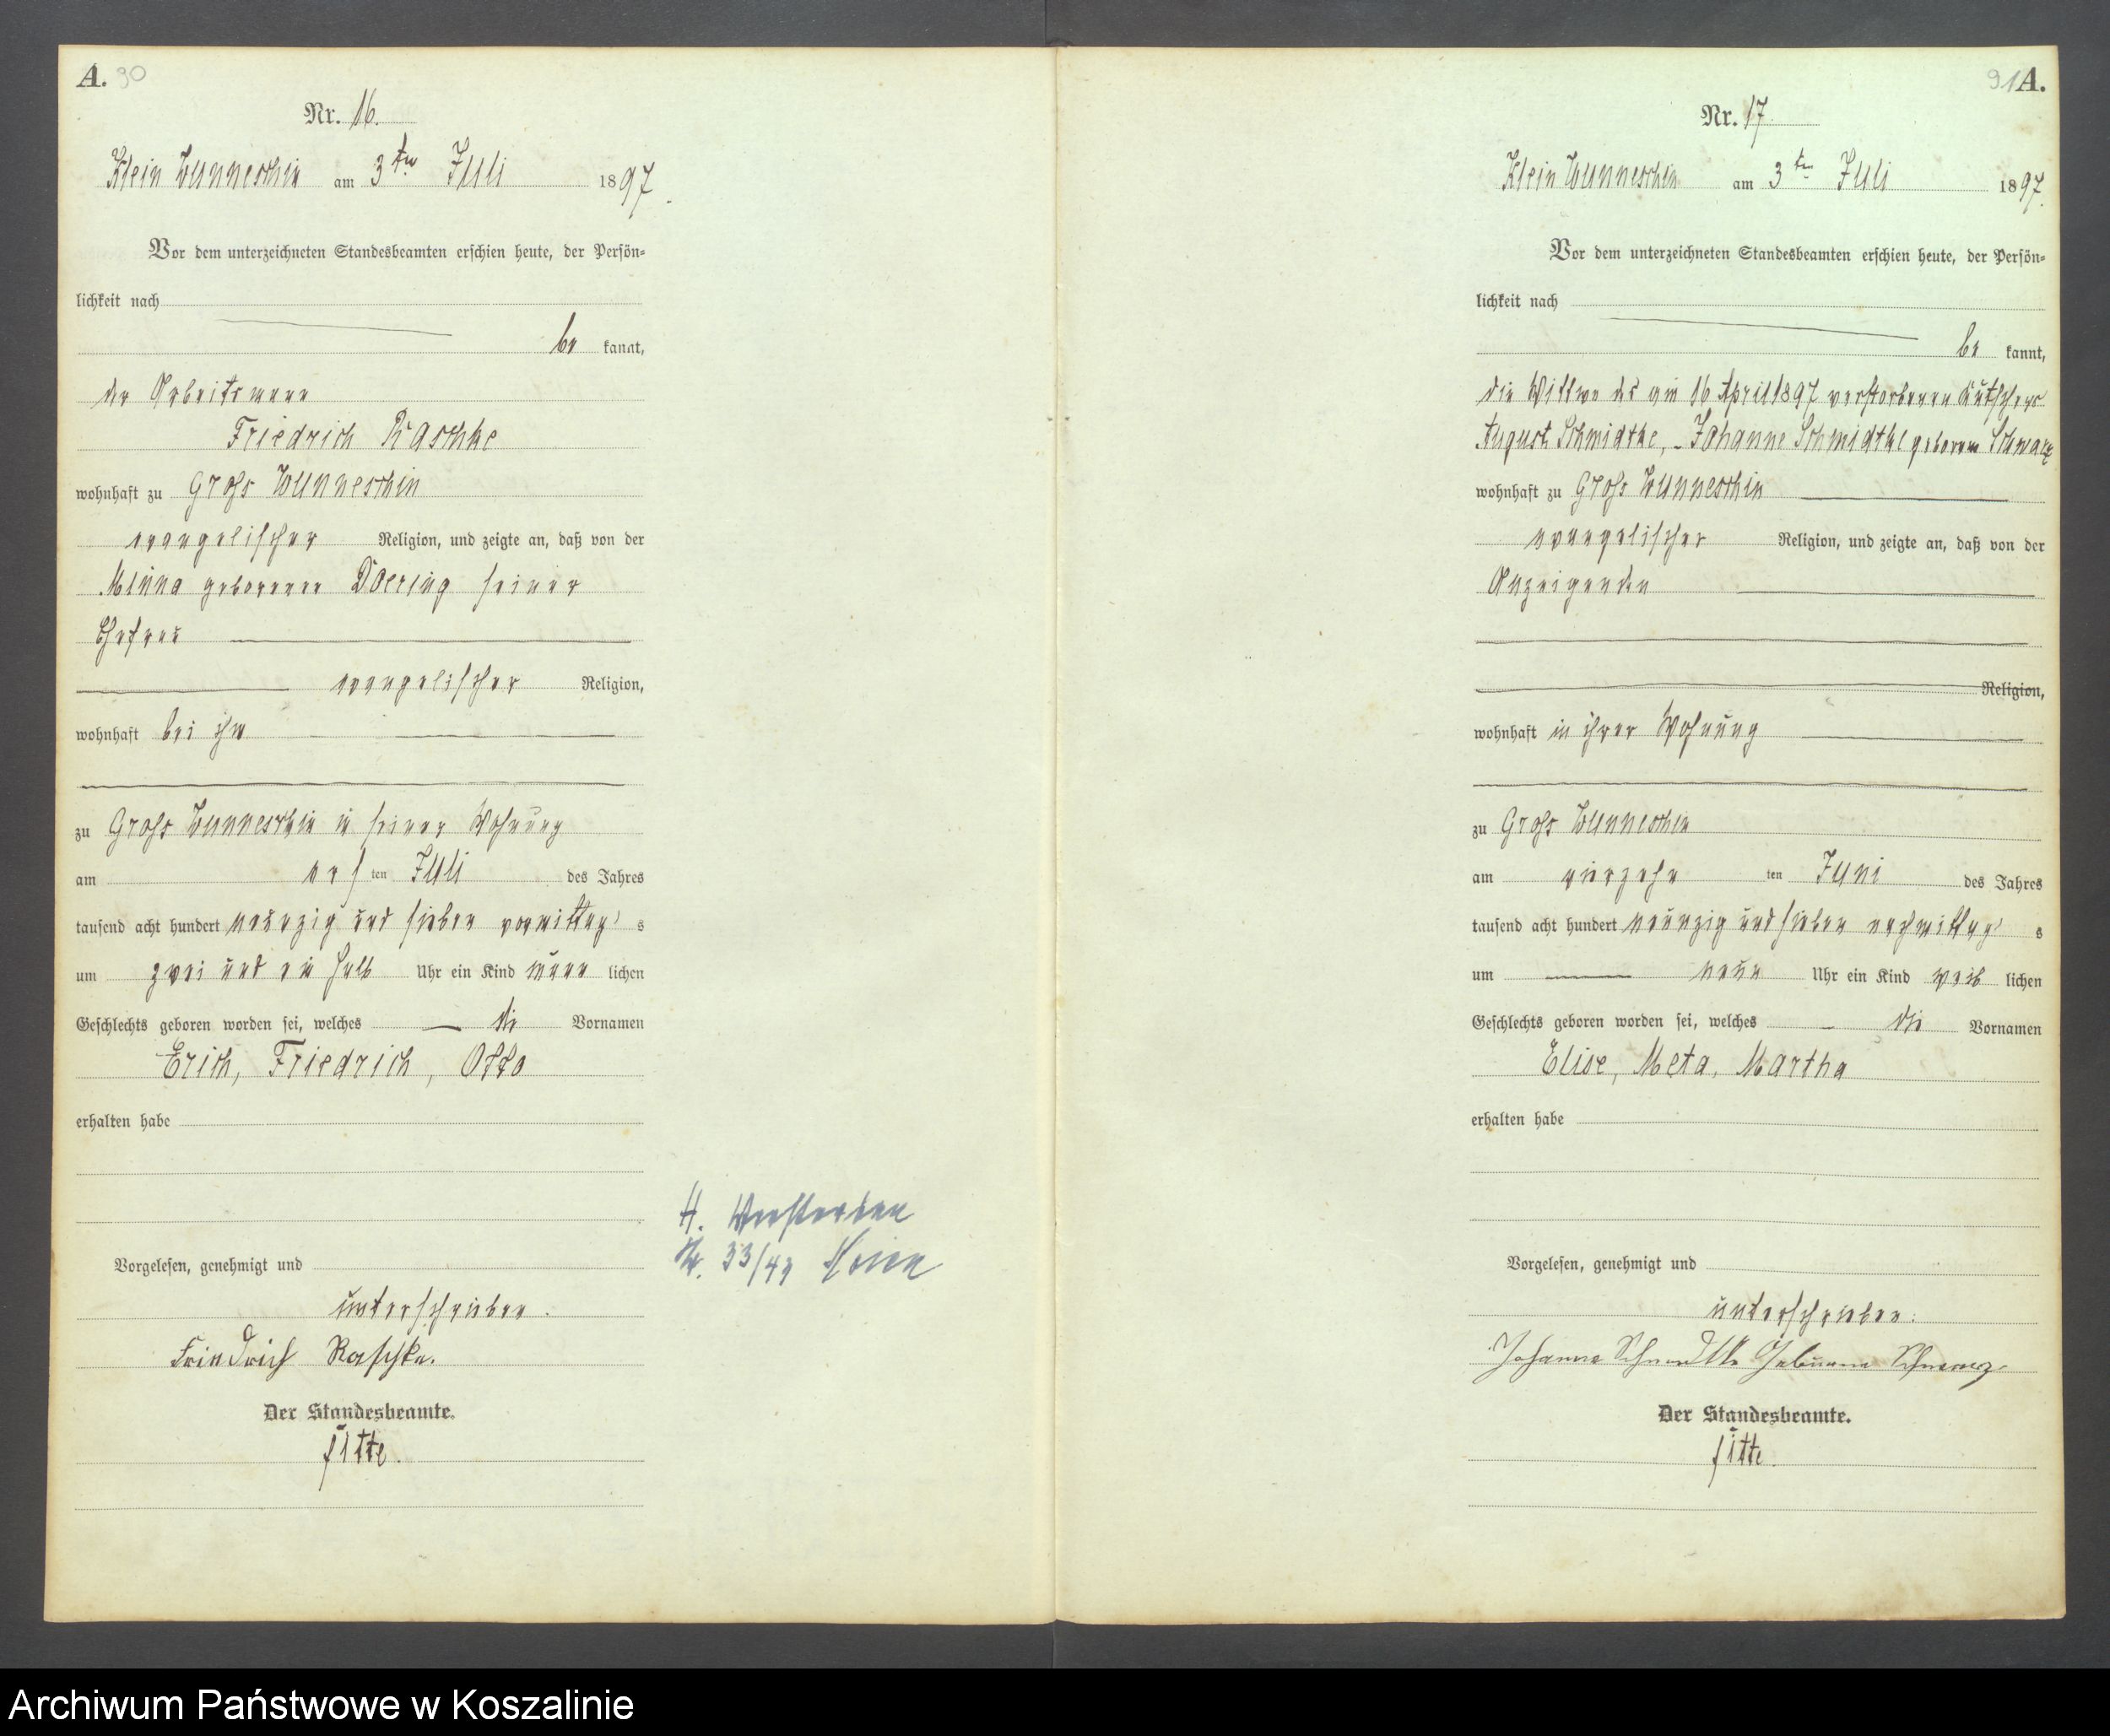 A. 30
Nr. 16.
Klein Wunneschin am 3ten Juli 1897.
Vor dem unterzeichneten Standesbeamten erschien heute, der Persön=
lichkeit nach
be kannt,
der Arbeitsmann
Friedrich Raschke
wohnhaft zu Groß Wunneschin
evangelischer Religion, und zeigte an, daß von der
Minna geborenen Doering seiner
Ehefrau
evangelischer Religion,
wohnhaft bei ihm
zu Groß Wunneschin in seiner Wohnung
am ersten Juli des Jahres
tausend acht hundert neunzig und sieben vormittags
um zwei und ein halb Uhr ein Kind männlichen
Geschlechts geboren worden sei, welches die Vornamen
Erich, Friedrich, Otto
erhalten habe
Vorgelesen, genehmigt und
unterschrieben.
Friedrich Raschke.
Der Standesbeamte.
H. Verstorben
Nr. 33/43
91 A.
Nr. 17
Klein Wunneschin am 3ten Juli 1897.
Vor dem unterzeichneten Standesbeamten erschien heute, der Persön=
lichkeit nach
be kannt,
die Wittwe des am 16 April 1897 verstorbenen Kutschers
August Schmidtke, - Johanne Schmidtke geborene Schwarz
wohnhaft zu Groß Wunneschin
evangelischer Religion, und zeigte an, daß von der
Anzeigenden
Religion,
wohnhaft in ihrer Wohnung
zu Groß Wunneschin
am vierzehnten Juni des Jahres
tausend acht hundert neunzig und sieben nachmittags
um neun Uhr ein Kind weiblichen
Geschlechts geboren worden sei, welches die Vornamen
Elise, Meta, Martha
erhalten habe
Vorgelesen, genehmigt und
unterschrieben.
Johanne Schmidtke Geborene Schwarz
Der Standesbeamte.
Archiwum Państwowe w Koszalinie